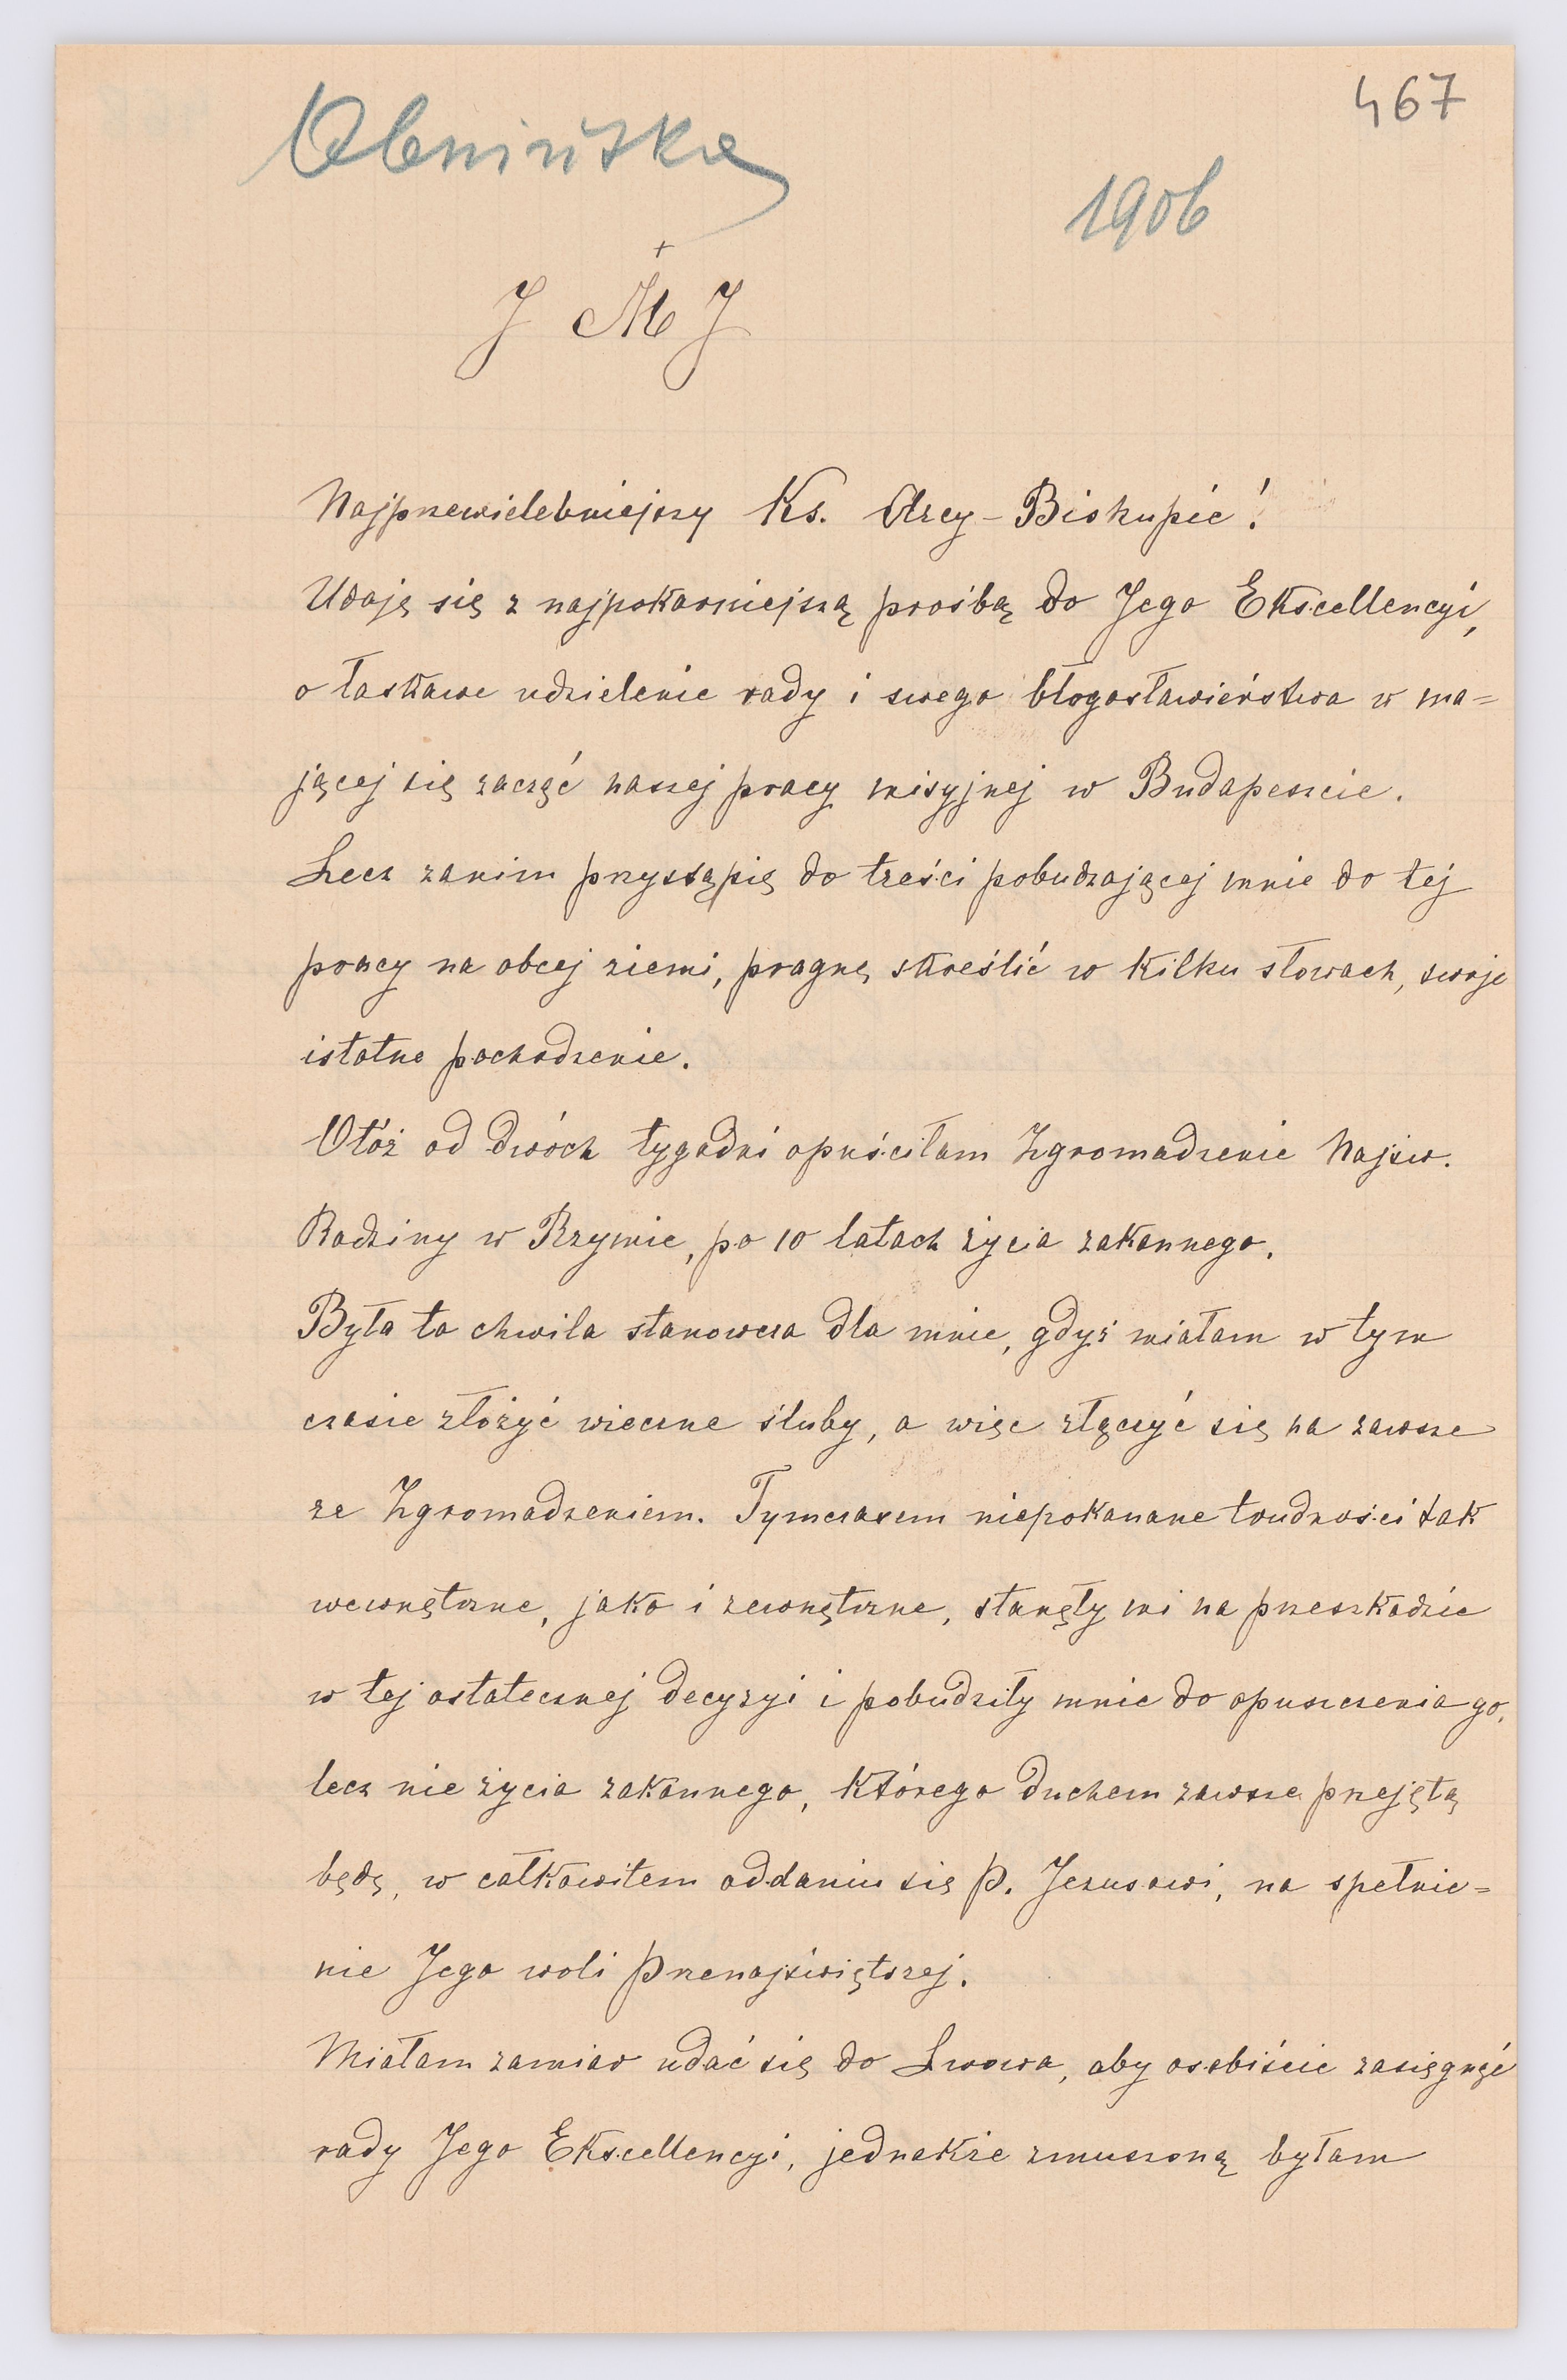 467
Obmińska
1906
+
J M J
Najprzewielebniejszy Ks. Arcy-Biskupie!
Udaję się z najpokorniejszą prośbą do Jego Ekscellencyi,
o łaskawe udzielenie rady i swego błogosławieństwa w ma=
jącej się zacząć naszej pracy misyjnej w Budapeszcie.
Lecz zanim przystąpię do treści pobudzającej mnie do tej
pracy na obcej ziemi, pragnę skreślić w kilku słowach, swoje
istotne pochodzenie.
Otóż od dwóch tygodni opuściłam Zgromadzenie Najśw.
Rodziny w Rzymie, po 10 latach życia zakonnego.
Była to chwila stanowcza dla mnie, gdyż miałam w tym
czasie złożyć wieczne śluby, a więc złączyć się na zawsze
ze Zgromadzeniem. Tymczasem niepokonane trudności tak
wewnętrzne, jako i zewnętrzne, stanęły mi na przeszkodzie
w tej ostatecznej decyzyi i pobudziły mnie do opuszczenia go,
lecz nie życia zakonnego, którego duchem zawsze przejętą
będę, w całkowitem oddaniu się P. Jezusowi, na spełnie=
nie Jego woli Przenajświętszej.
Miałam zamiar udać się do Lwowa, aby osobiście zasięgnąć
rady Jego Ekscellencyi, jednakże zmuszoną byłam